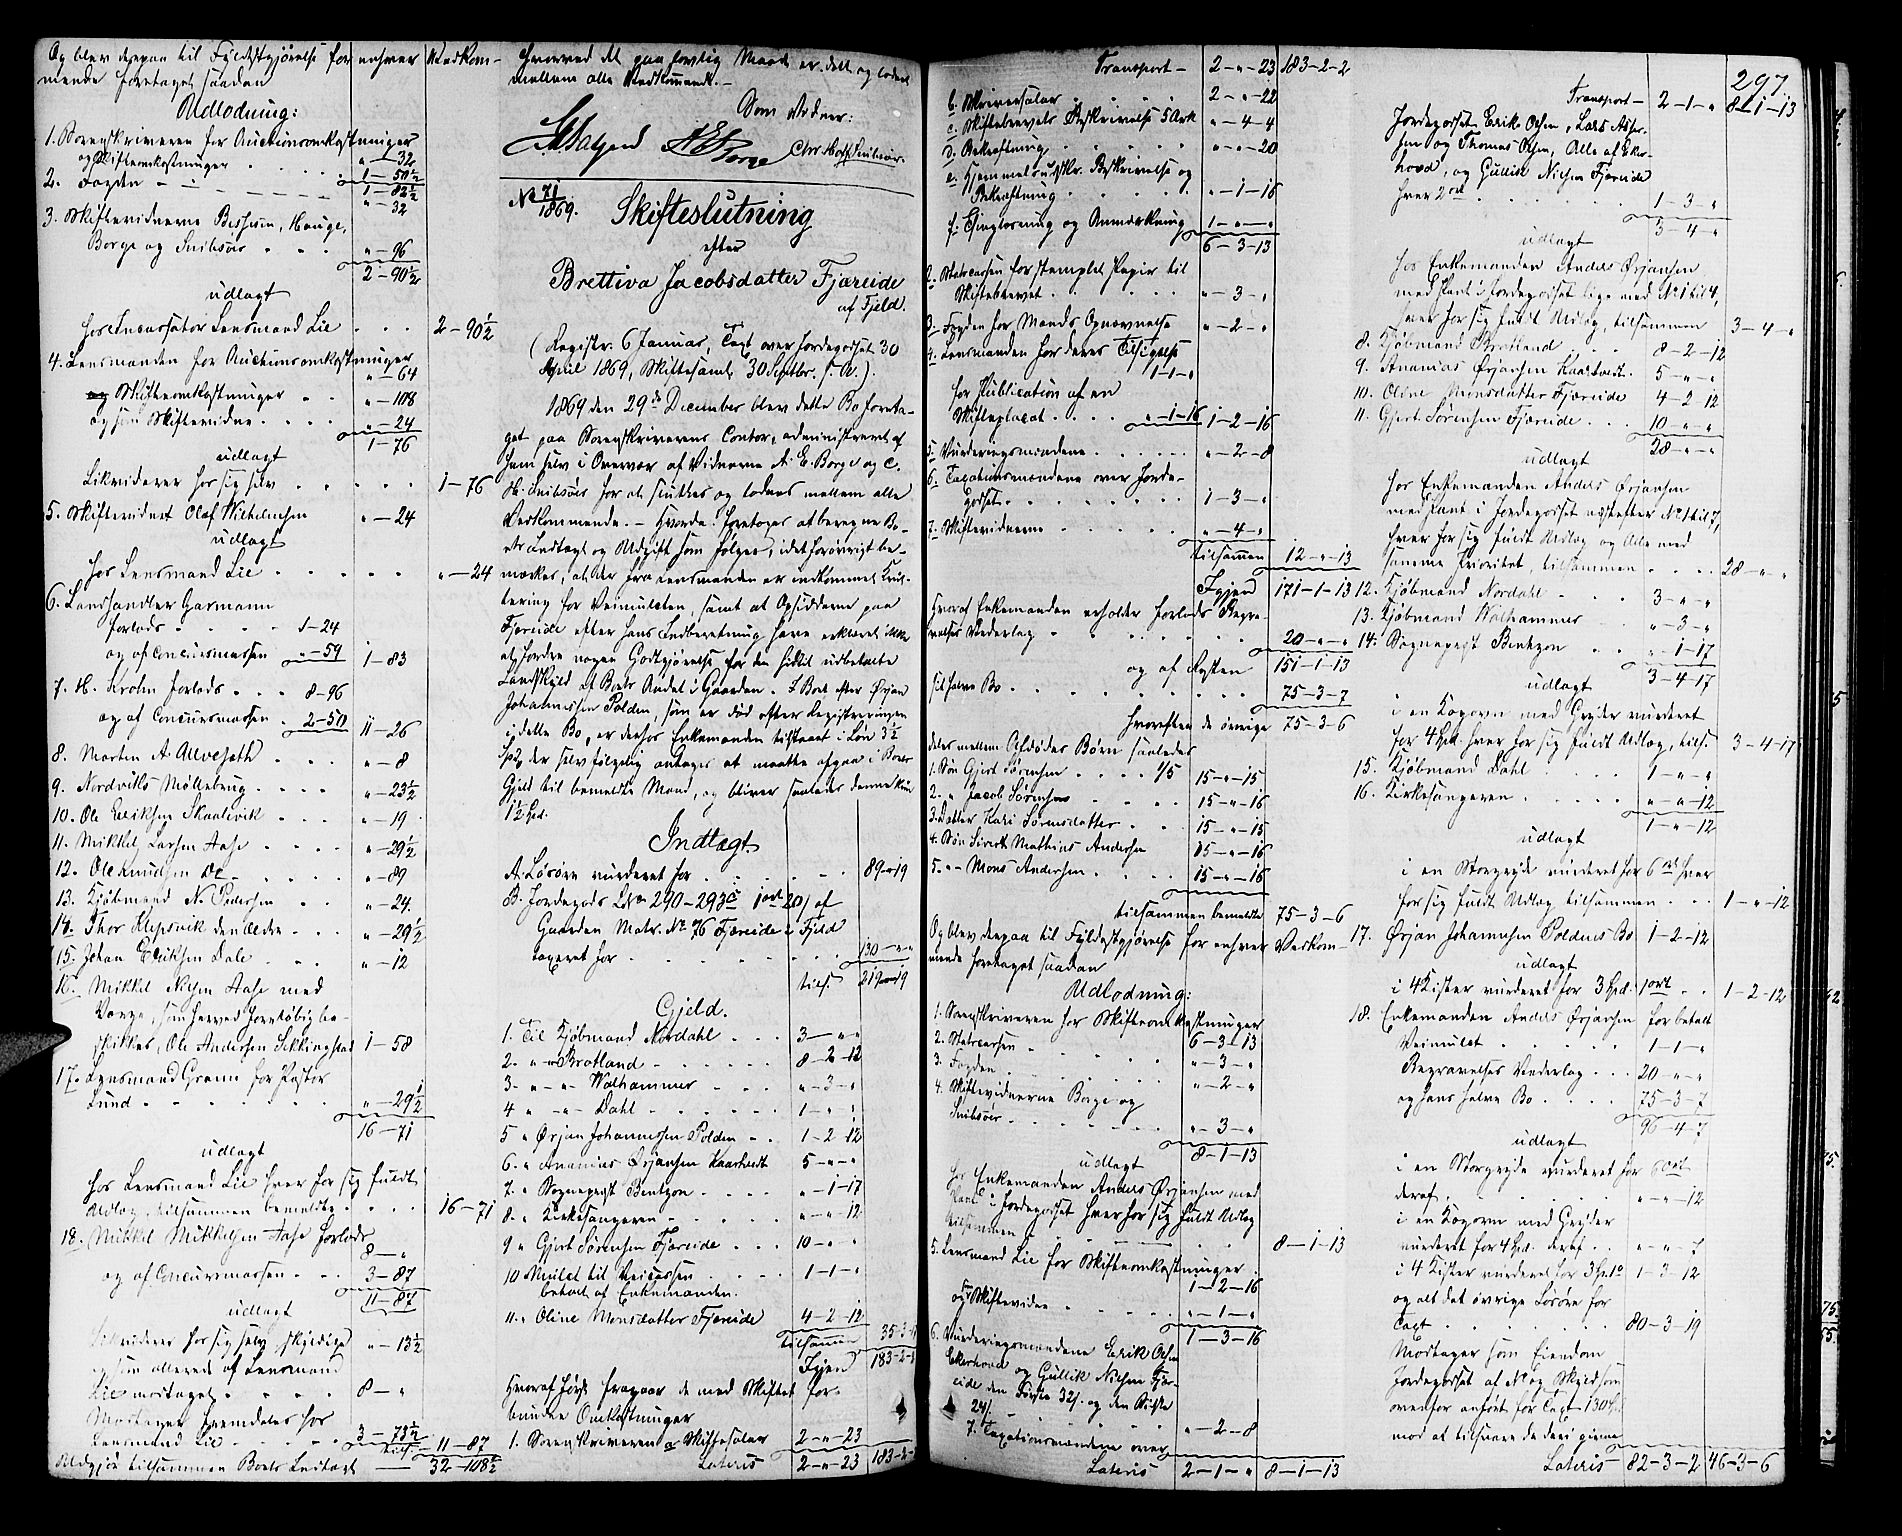 Og blev derpaa til Fyldestgjørelse for enhver Vedkom-
mende foretaget saadan
Udlodning:
1. Sorenskriveren for Auctionsomkostninger
og Skifteomkostninger „-32
1-50½
2. Fogden 1-82½
„-32
3. Skiftevidnerne
Borge og Snibsøer „-96
2-90½
udlagt
hos Incassator Lensmand Lie 2-90½
4. Lensmanden for Auctionsomkostninger
„-64
og Skifteomkostninger „-108
og som Skiftevidne „-24
1-76
udlagt
Likviderer hos sig selv 1-76
5. Skiftevidnet Olaf Wilhelmsen „-24
udlagt
hos Lensmand Lie „-24
6. Landhandler Garmann
forlods 1-24
og af Concursmassen „-59 1-83
7. H. Krohn forlods 8-96
og af Concursmassen 2-50 11-26
8. Morten A „-8
9. Nordviks Møllebrug „-23½
10. Ole Eriksen Skaalevik „-19
11. Mikkel Larsen Aase „-29½
12. Ole Knudsen „-89
13. Kjøbmand N. Pedersen „-24
14. Thor Klepsvik den Ældre „-29½
15. Johan Eriksen Dale „-12
16. Mikkel Nilsen Aase med
Værge, som herved foreløbig be-
skikkes, Ole Andersen 1-58
17. Lensmand Grønn for Pastor
Lund „-29½
16-71
udlagt
hos Lensmand Lie hver for sig fuldt
Udlæg, tilsammen bemeldte 16-71
18. Mikkel Mikkelsen Aase forlods
8-„
og af Concursmassen 3-87
11-87
udlagt
Likviderer hos sig selv skyldige „-13½
og som allerede af Lensmand
Lie modtaget 8-„
Modtager fremdeles hos
Lensmand Lie 3-73½
tils. 11-87
Udgjør tilsammen Boets Indtægt 32-108½
hvorved det paa lovlig Maade er delt og loddet
mellem alle Vedkommende.-
Som Vidner:
A E Borge Chr. Holst Snibsøer
No 71/1869. Skifteslutning
efter
Brettiva Jacobsdatter Fjæreide
af Fjeld.
(Registr. 6 Januar, Taxt over Jordegodset 30
April 1869, Skiftesaml. 30 Septbr. s. A.)
1869 den 29de December blev dette Bo foreta-
get paa Sorenskriverens Contor, administreret af
ham selv i Overvær af Vidnerne A. E. Borge og C.
H. Snibsøer for at sluttes og loddes mellem alle
Vedkommende.- Hvorda foretoges at beregne Bo-
ets Indtægt og Udgift som følger, idet forøvrigt be-
mærkes, at der fra Lensmanden er indkommet Kvit-
tering for Veimulkten, samt at Opsidderne paa
Fjæreide efter hans Indberetning have erklæret ikke
at fordre nogen Godtgjørelse for den hidtil udbetalte
Landskyld af Boets Andel i Gaarden. I Boet efter Ørjan
Johannessen Polden, som er død efter Registreringen
i dette Bo, er derhos Enkemanden tilstaaet i Løn 3½
Spd. der selvfølgelig antages at maatte afgaa i Boets
Gjeld til bemeldte Mand, og bliver saaledes denne kun
1½ Spd.
Indtægt.
A. Løsøre vurderet for 89-„-19
B. Jordegods Løbe No 290-293c 1 ort 20 s af
Gaarden Matr. No 76 Fjæreide i Fjeld
taxeret for 130-„-„
tils. 219-„-19
Gjeld.
1. Til Kjøbmand Nordahl 3-„-„
2. „ „ Brotland 8-2-12
3. „ „ Walhammer „-3-„
4 „ „ Dahl 1-„-„
5 „ Ørjan Johannessen Polden 1-2-12
6. „ Ananias Ørjansen Kaartvedt 5-„-„
7. „ Sognepræst Bentzon „-1-17
8. „ Kirkesangeren „-„-12
9 „ Gjert Sørensen Fjæreide 10-„-„
10 Mulct til Veicassen 1-1-„
betalt af Enkemanden.
11. „ Oline Monsdatter Fjæreide 4-2-12
tilsammen
Igjen 183-2-2
Hvoraf først fragaar de med Skiftet for-
bundne Omkostninger
1. Sorenskriveren a Skiftesalær 2-„-23
Lateris 2-„-23 183-2-2
Transport 2-„-23 183-2-2
b. Skriversalær 2-„-22
c. Skiftebrevets Beskrivelse 5 Ark „-4-4
d. Bekræftning „-„-20
e. Hjemmelsudskr. Beskrivelse og
Bekræftning „-1-16
f. Tinglæsning og Anmærkning 1-„-„
6-3-13
2. Statcassen for stemplet Papir til
Skiftebrevet „-3-„
3. Fogden for Mands Opnævnelse „-2-„
4. Lensmanden for deres Tilsigelse
1-1-„
for Publication af en
Skifteplacat „-1-16 1-2-16
5. Vurderingsmændene „-2-8
6. Taxationsmændene over Jorde-
godset 1-3-„
7. Skiftevidnerne „-4-„
tilsammen 12-„-13
Igjen 171-1-13
Hvoraf Enkemanden erholder forlods Begra-
velses Vederlag 20-„-„
og af Resten 151-1-13
sit halve Bo 75-3-7
hvorefter de øvrige 75-3-6
deles mellem Afdødes Børn saaledes
1. Søn Gjert Sørensen 1/5 15-„-15
2. „ Jacob Sørensen 15-„-16
3. Datter Kari Sørensdatter 15-„-15
4. Søn Sivert Mathias Andersen 15-„-16
5. „ Mons Andersen 15-„-16
tilsammen bemeldte 75-3-6
Og blev derpaa til Fyldestgjørelse for enhver Vedkom-
mende foretaget saadan
Udlodning:
1. Sorenskriveren for Skifteomkostninger
6-3-13
2. Statcassen „-3-„
3. Fogden „-2-„
4. Skiftevidnerne Borge og
Snibsøer „-3-„
8-1-13
udlagt
hos Enkemanden Anders Ørjansen med
Pant i Jordegodset hver for sig fuldt Udlæg
tilsammen 8-1-13
5. Lensmand Lie for Skifteomkostninger
1-2-16
og Skiftevidne „-1-„
1-3-16
6. Vurderingsmændene Erik Olsen
Ekerhovd og Gullik Nilsen Fjær-
eide den Første 32 s. og den Sidste
24 s. „-2-8
7. Taxationsmændene over
Lateris 2-1-„ 8-1-13
297.
Transport 2-1-„ 8-1-13
Jordegodset Erik Olsen, Lars Asser-
sen og Thomas Olsen, Alle af Eker-
hovd, og Gullik Nilsen Fjæreide
hver 2 ort 1-3-„
3-4-„
udlagt
hos Enkemanden Anders Ørjansen
med Pant i Jordegodset lige med No 1 til 4,
hver for sig fuldt Udlæg, tilsammen 3-4-„
8. Kjøbmand Brotland 8-2-12
9. Ananias Ørjansen Kaartvedt 5-„-„
10. Oline Monsdatter Fjæreide 4-2-12
11. Gjert Sørensen Fjæreide 10-„-„
28-„-„
udlagt
hos Enkemanden Anders Ørjansen
med Pant i Jordegodset næstefter No 1 til 7,
hver for sig fuldt Udlæg og Alle med
samme Prioritet, tilsammen 28-„-„
12. Kjøbmand Nordahl 3-„-„
13. Kjøbmand Walhammer „-3-„
14. Sognepræst Bentzon „-1-17
3-4-17
udlagt
i en Kogovn med Gryder vurderet
for 4 Spd. hver for sig fuldt Udlæg, tils. 3-4-17
15. Kjøbmand Dahl 1-„-„
16. Kirkesangeren „-„-12
1-„-12
udlagt
i en Storgryde vurderet for 6 ort hver
for sig fuldt Udlæg, tilsammen 1-„-12
17. Ørjan Johannesen Poldens Bo 1-2-12
udlagt
i 4 Kister vurderet for 3 Spd. 1 ort 1-2-12
18. Enkemanden Anders Ørjansen for betalt
Veimulct 1-1-„
Begravelses Vederlag 20-„-„
og hans halve Bo 75-3-7
96-4-7
udlagt
i en Storgryde vurderet for 6 ort
deraf „-„-12
i en Kogovn med Gryder
vurderet for 4 Spd. deraf „-„-7
i 4 Kister vurderet for 3 Spd. 1 o 1-3-12
og alt det øvrige Løsøre for
Taxt 80-3-19
Modtager som Eiendom
Jordegodset af No og Skyld som
ovenfor anført for Taxt 130 Spd.
mod at tilsvare de deri givne
Lateris 82-3-2 46-3-6